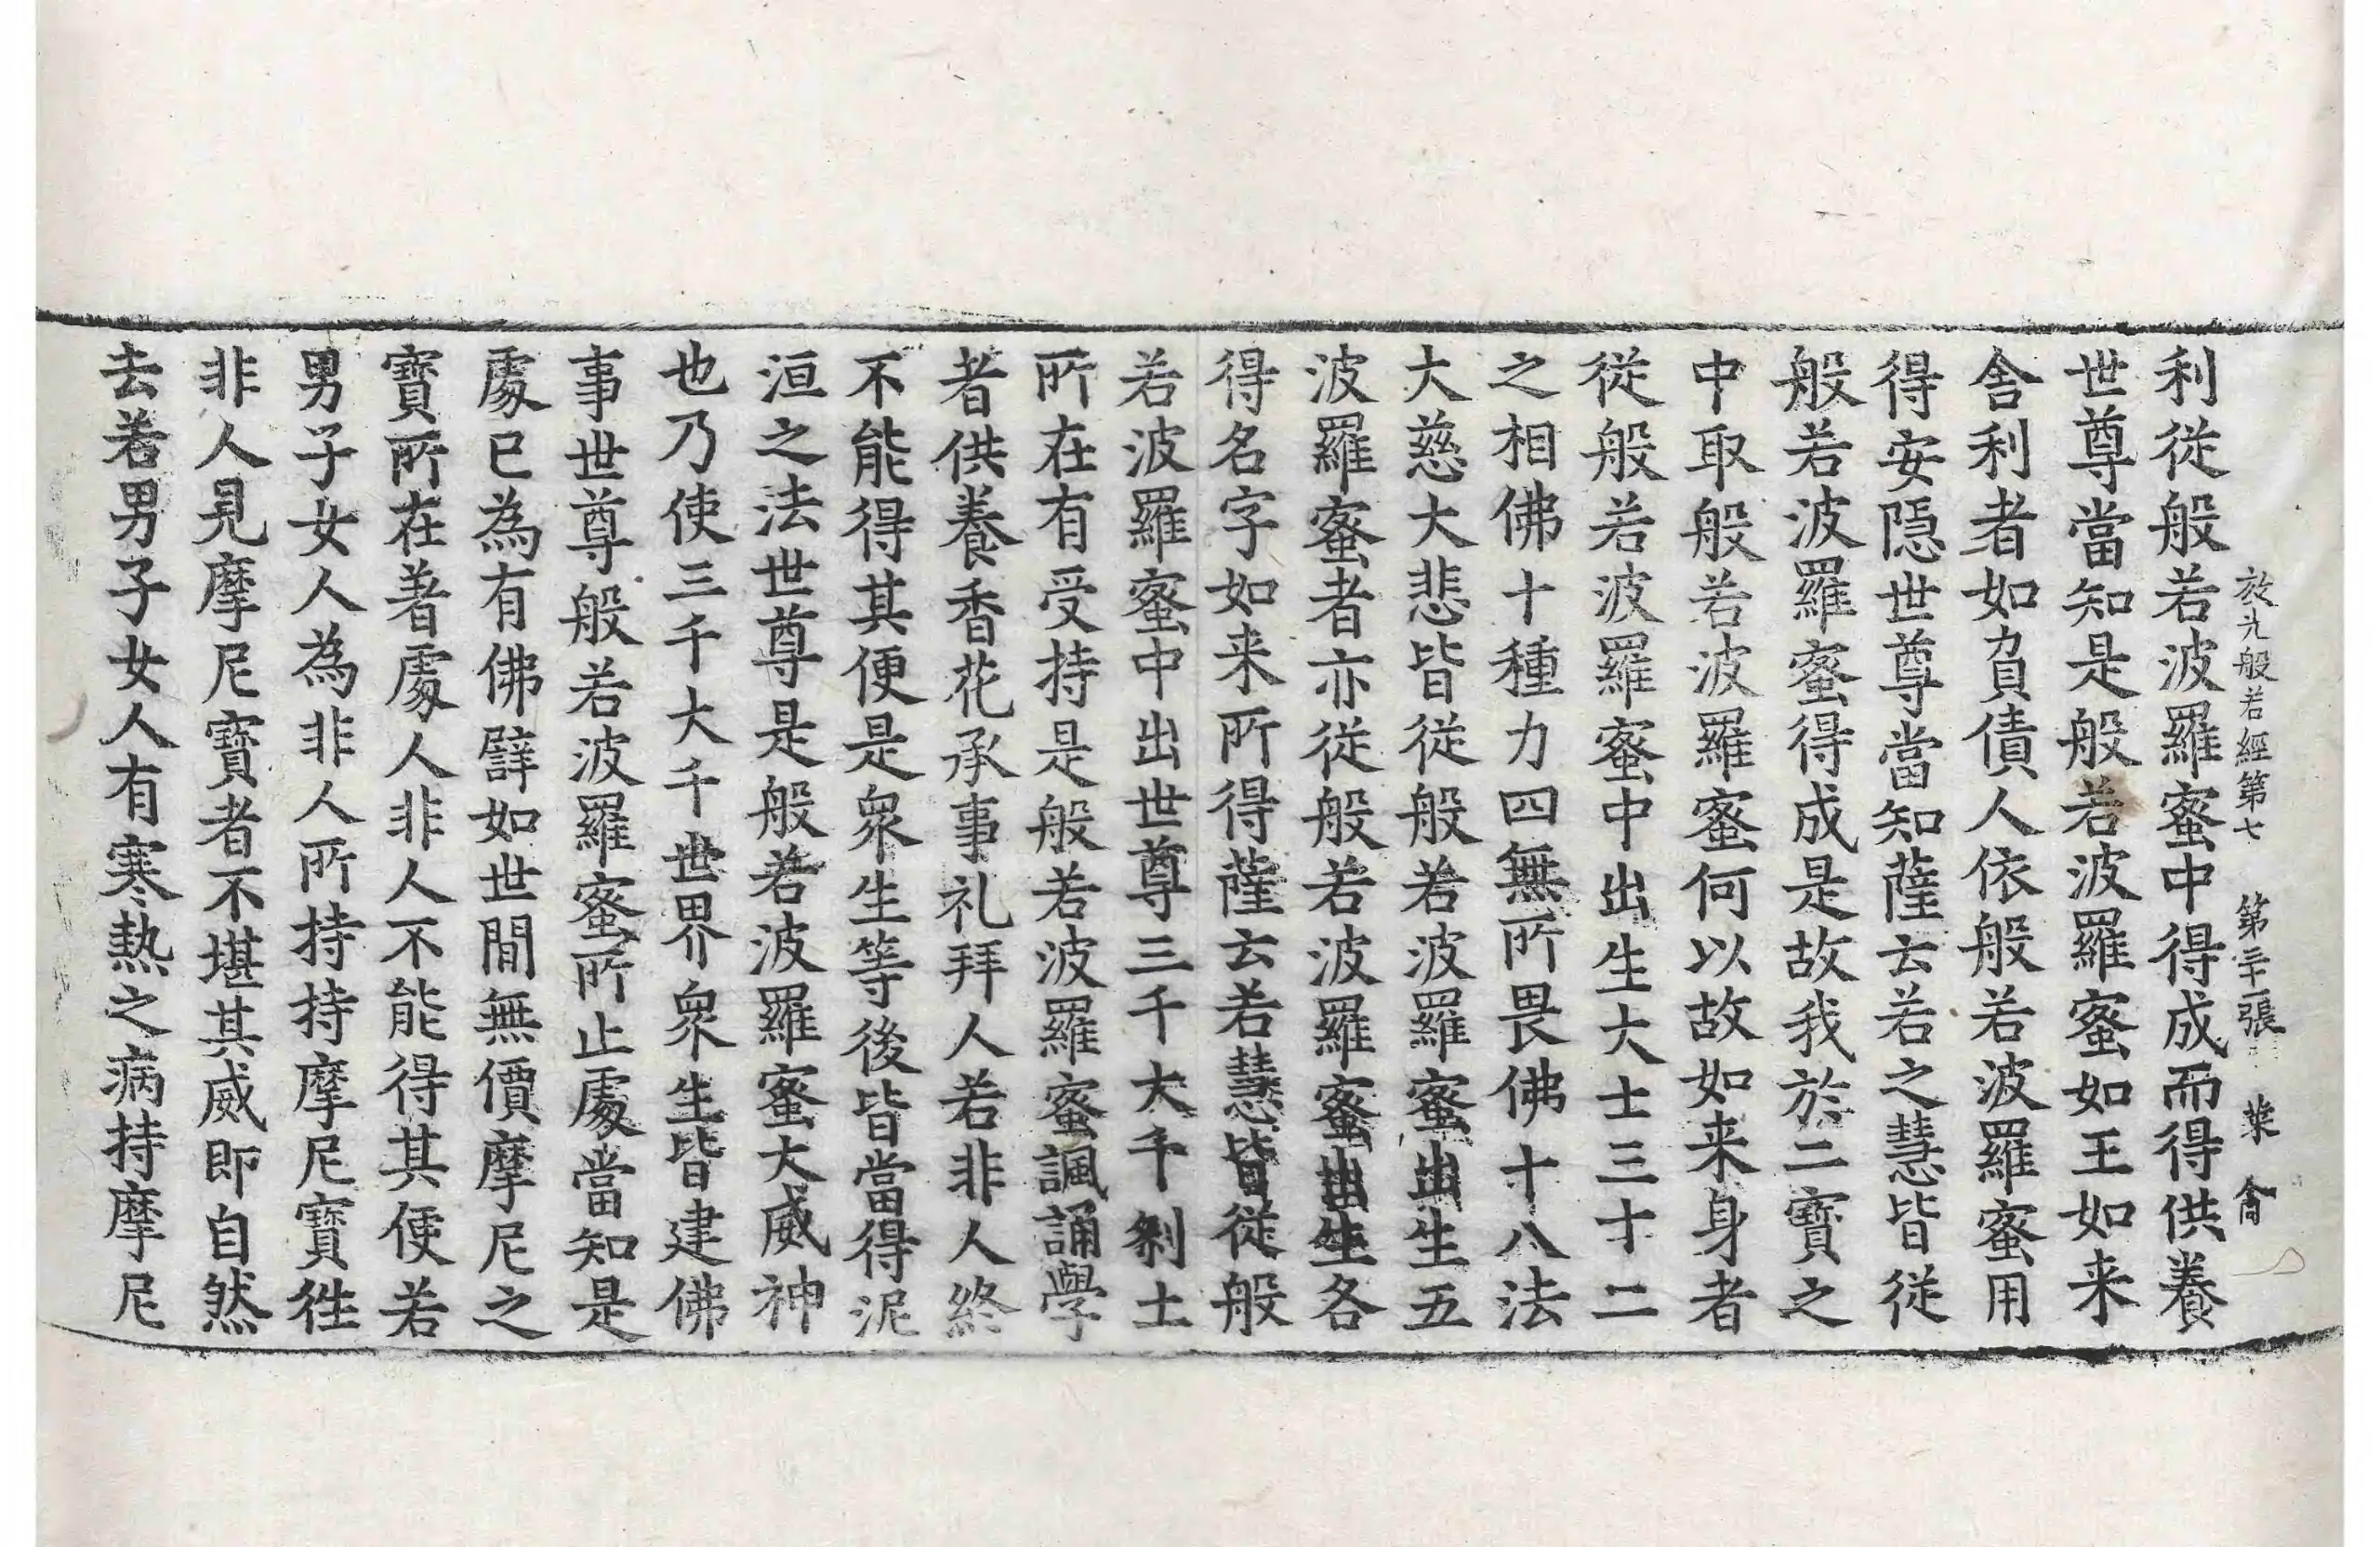 放光般若經第七 第三十二張 菜
利従般若波羅蜜中得成而得供養
世尊當知是般若波羅蜜如王如来
舎利者如負債人依般若波羅蜜用
得安隠世尊當知薩云若之慧皆従
般若波羅蜜得成是故我於二寶之
中取般若波羅蜜何以故如来身者
従般若波羅蜜中出生大士三十二
之相佛十種力四無所畏佛十八法
大慈大悲皆従般若波羅蜜出生五
波羅蜜者亦従般若波羅蜜出生各
得名字如来所得薩云若慧皆従般
若波羅蜜中出世尊三千大千剎土
所在有受持是般若波羅蜜諷誦學
者供養香花承事礼拜人若非人終
不能得其便是衆生等後皆當得泥
洹之法世尊是般若波羅蜜大威神
也乃使三千大千世界衆生皆建佛
事世尊般若波羅蜜所止處當知是
處已為有佛譬如世間無價摩尼之
寶所在著處人非人不能得其便若
男子女人為非人所持持摩尼寶徃
非人見摩尼寶者不堪其威即自然
去若男子女人有寒熱之病持摩尼